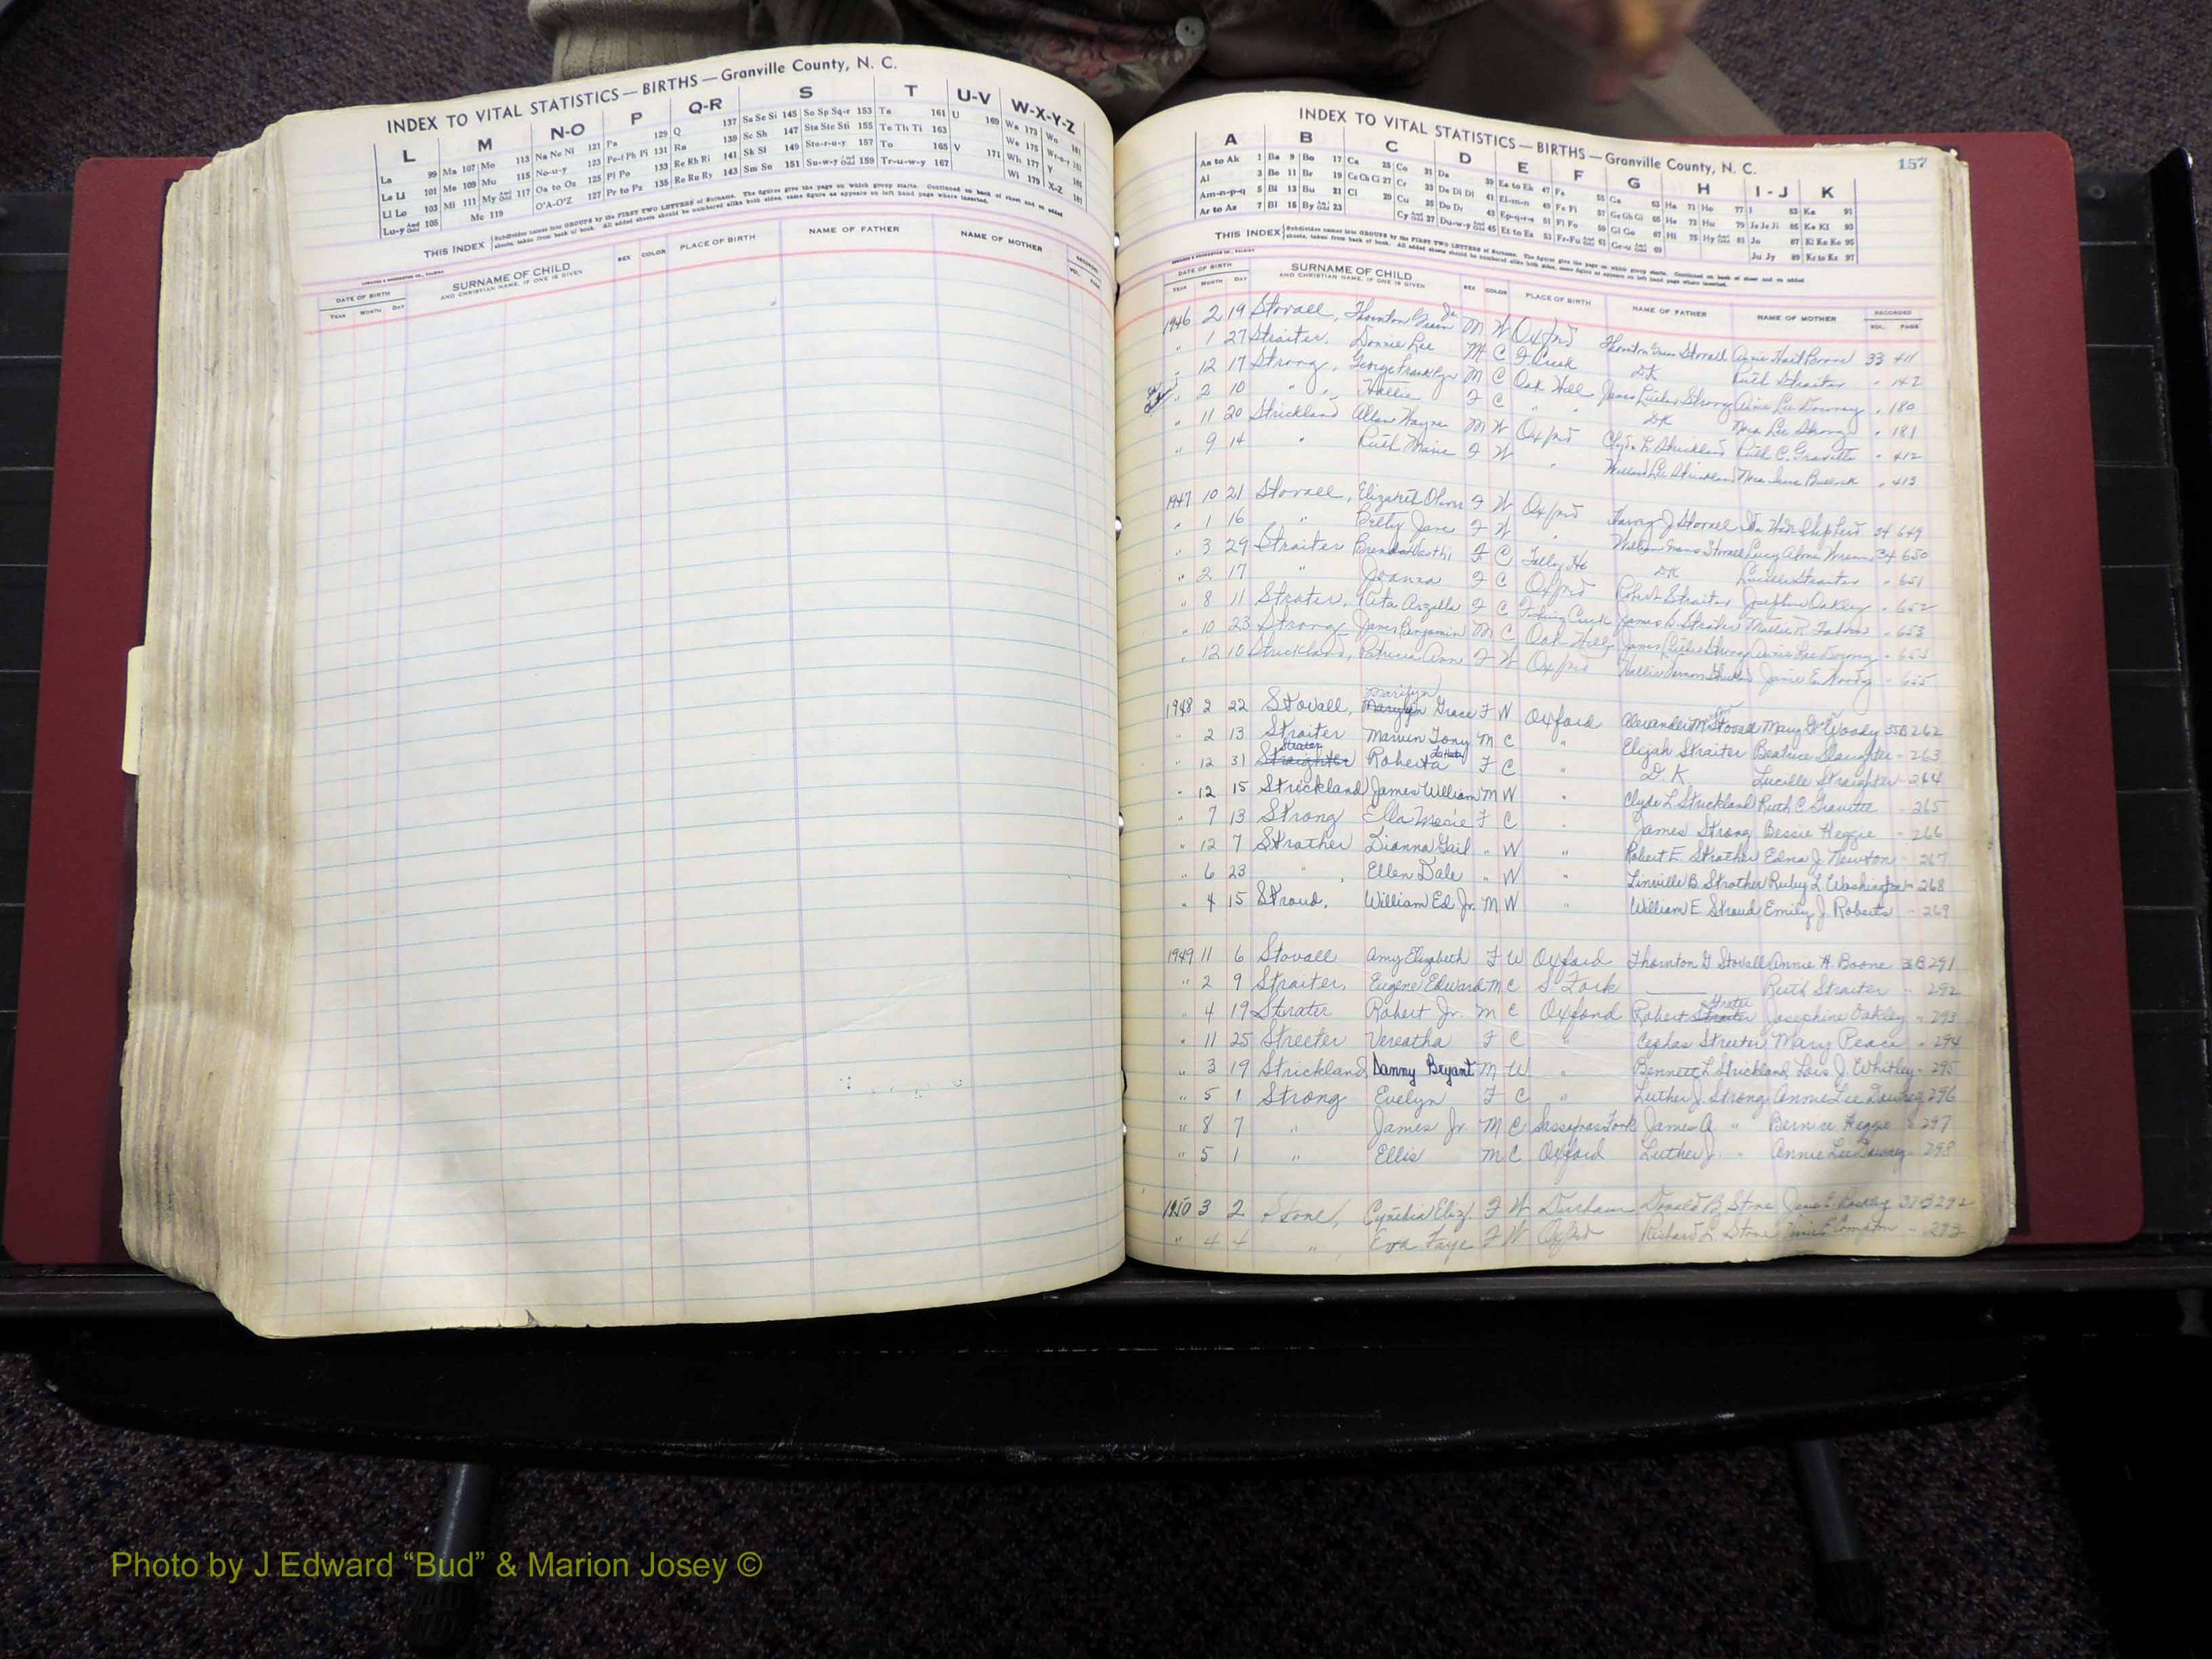 INDEX TO VITAL STATISTICS — BIRTHS — Granville County, N. C.
L M N-O P Q-R S T U-V W-X-Y-Z
La 99 Ma 107 Mo 113 Na Ne Ni 121 Pa 129 Q 137 Sa Se Si 145 So Sp Sq-r 153 Ta 161 U 169 Wa 173 Wo 181
Le Li 101 Me 109 Mu 115 No-u-y 123 Pe-f Ph Pi 131 Ra 139 Sc Sh 147 Sta Ste Sti 155 Te Th Ti 163 We 175
Ll Lo 103 Mi 111 My And Odd 117 Oa to Oz 125 Pl Po 133 Re Rh Ri 141 Sk Sl 149 Sto-r-u-y 157 To 165 V 171 Wh 177 Y
Lu-y And Odd 105 Mc 119 O'A-O'Z 127 Pr to Pz 135 Ro Ru Ry 143 Sm Sn 151 Su-w-y And Odd 159 Tr-u-w-y 167 Wi 179 X-Z
THIS INDEX Subdivides names into GROUPS by the FIRST TWO LETTERS of Surname. The figures give the page on which group starts. Continued on back of sheet and on added
sheets, taken from back of book. All added sheets should be numbered alike both sides, same figure as appears on left hand page where inserted.
DATE OF BIRTH SURNAME OF CHILD SEX COLOR PLACE OF BIRTH NAME OF FATHER NAME OF MOTHER
YEAR MONTH DAY AND CHRISTIAN NAME, IF ONE IS GIVEN VOL. PAGE
INDEX TO VITAL STATISTICS — BIRTHS — Granville County, N. C. 157
A B C D E F G H I-J K
Aa to Ak 1 Ba 9 Bo 17 Ca 25 Co 31 Da 39 Ea to Ek 47 Fa 55 Ga 63 Ha 71 Ho 77 I 83 Ka 91
Al 3 Be 11 Br 19 Ce Ch Ci 27 Cr 33 De Di Dj 41 El-m-n 49 Fe Fi 57 Ge Gh Gi 65 He 73 Hu 79 Ja Je Ji 85 Ke Ki 93
Am-n-p-q 5 Bi 13 Bu 21 Cl 29 Cu 35 Do Dr 43 Ep-q-r-s 51 Fl Fo 59 Gl Go 67 Hi 75 Hy And Odd 81 Jo 87 Kl Kn Ko 95
Ar to Az 7 Bl 15 By And Odd 23 Cy And Odd 37 Du-w-y And Odd 45 Et to Ez 53 Fr-Fu And Odd 61 Gr-u And Odd 69 Ju Jy 89 Kr to Kz 97
THIS INDEX Subdivides names into GROUPS by the FIRST TWO LETTERS of Surname. The figures give the page on which group starts. Continued on back of sheet and on added
sheets, taken from back of book. All added sheets should be numbered alike both sides, same figure as appears on left hand page where inserted.
DATE OF BIRTH SURNAME OF CHILD SEX COLOR PLACE OF BIRTH NAME OF FATHER NAME OF MOTHER RECORDED
YEAR MONTH DAY AND CHRISTIAN NAME, IF ONE IS GIVEN VOL. PAGE
1946 2 19 Stovall, Thornton Green Jr. M W Oxford Thornton Green Stovall Annie Hart Boone 33 411
" 1 27 Straiter, Donnie Lee M C F Creek DK Ruth Straiter " 142
" 12 17 Strong, George Franklyn M C Oak Hill James Luther Strong Annie Lee Downey " 180
" 2 10 " , Hallie F C " " DK Lee Strong " 181
" 11 20 Strickland Allan Wayne M W Oxford Clyde L Strickland Ruth C. Gravitte " 412
" 9 14 " Ruth Marie F W " Willard Lee Strickland Bullock " 413
1947 10 21 Stovall, Elizabeth Oliver F W Oxford Harvey J Stovall 34 649
" 1 16 " Betty Jane F W " William Evans Stovall Lucy Wrenn 34 650
" 3 29 Straiter Brenda F C Tally Ho DK Lucille Straiter " 651
" 2 17 " Joanna F C Oxford Robert Straiter Josephine Oakley " 652
" 8 11 Strater, Rita Arzella F C Fishing Creek James Strater Mattie R. " 653
" 10 23 Strong James Benjamin M C Oak Hill James Luther Strong Annie Lee Downey " 654
" 12 10 Strickland, Patricia Ann F W Oxford Vernon Strickland Janie E. Woody " 655
1948 2 22 Stovall, Marilyn Grace F W Oxford Alexander M Stovall Mary Woody 35B 262
" 2 13 Straiter Marvin Tony M C " Elijah Straiter Beatrice Slaughter " 263
" 12 31 Straighter Strater Roberta F C " D.K Lucille Straighter " 264
" 12 15 Strickland James William M W " Clyde L Strickland Ruth C Gravitte " 265
" 7 13 Strong Ella Mecie F C " James Strong Bessie Heggie " 266
" 12 7 Strather Dianna Gail " W " Robert E. Strather Edna J. Newton " 267
" 6 23 " Ellen Dale " W " Linville B. Strother Ruby L Washington " 268
" 4 15 Stroud, William Ed Jr. M W " William E Stroud Emily J. Roberts " 269
1949 11 6 Stovall Amy Elizabeth F W Oxford Thornton G Stovall Annie H. Boone 36B 291
" 2 9 Straiter, Eugene Edward M C S Fork —— Ruth Straiter " 292
" 4 19 Strater Robert Jr. M C Oxford Robert Straiter Strater Josephine Oakley " 293
" 11 25 Streeter Vereatha F C " Cephas Streeter Mary Peace " 294
" 3 19 Strickland Danny Bryant M W " Bennett L Strickland Lois J. Whitley " 295
" 5 1 Strong Evelyn F C " Luther J Strong Annie Lee Downey 296
" 8 7 " James Jr. M C Sassafras Fork James A. " Bernice Heggie " 297
" 5 1 " Ellis M C Oxford Luther J. " Annie Lee Downey " 298
1950 3 2 Stone, Cynthia Eliz. F W Durham Donald B. Stone 37B 292
" 4 4 " , Eva Faye F W Oxford Richard L. Stone Compton " 293
Photo by J Edward “Bud” & Marion Josey ©